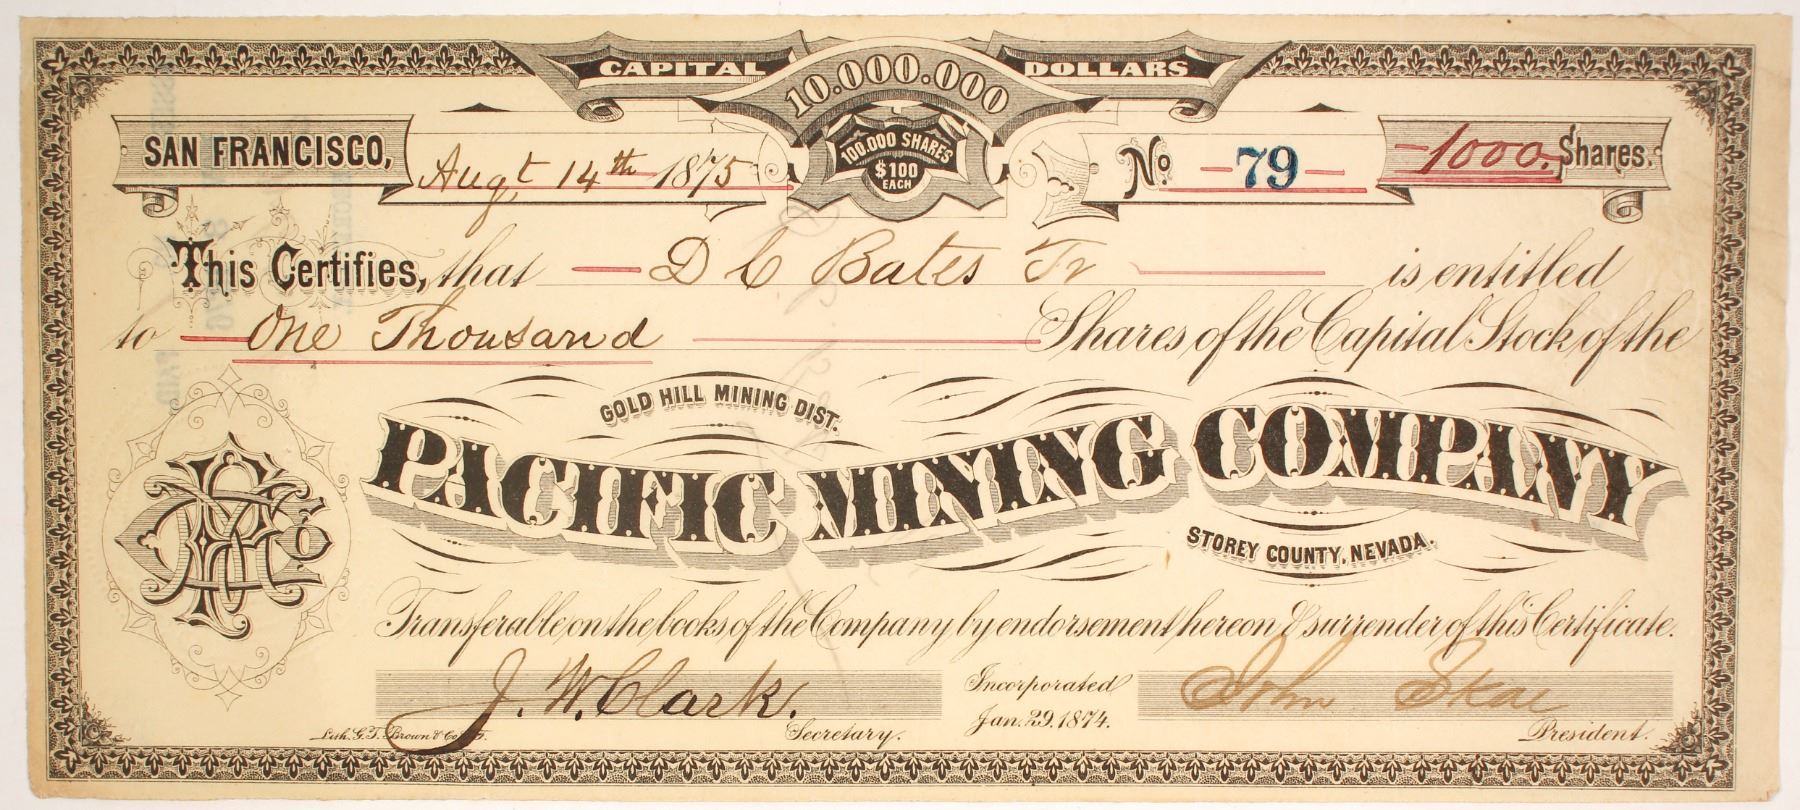 CAPITAL 10.000.000 DOLLARS
100.000 SHARES
$100
EACH
SAN FRANCISCO, Augt 14th 1875
No. 79
1000. Shares.
This Certifies, that D C Bates Jr is entitled
to One Thousand Shares of the Capital Stock of the
GOLD HILL MINING DIST.
PACIFIC MINING COMPANY
STOREY COUNTY, NEVADA.
Transferable on the books of the Company by endorsement hereon & surrender of this Certificate.
J. W. Clark.
Secretary.
Incorporated
Jan. 29. 1874.
John Skae
President.
Lith. G.T. Brown & Co. S.F.